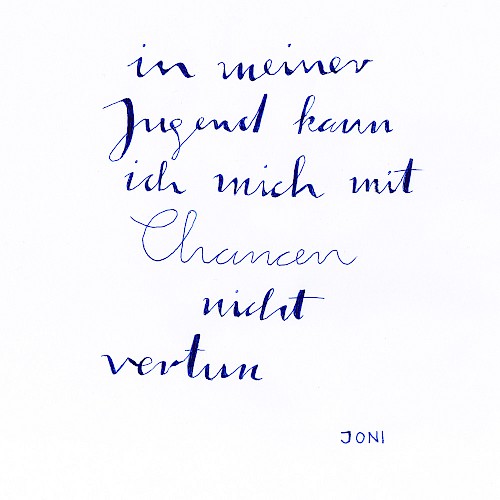 in meiner
Jugend kann
ich mich mit
Chancen
nicht
vertun
JONI